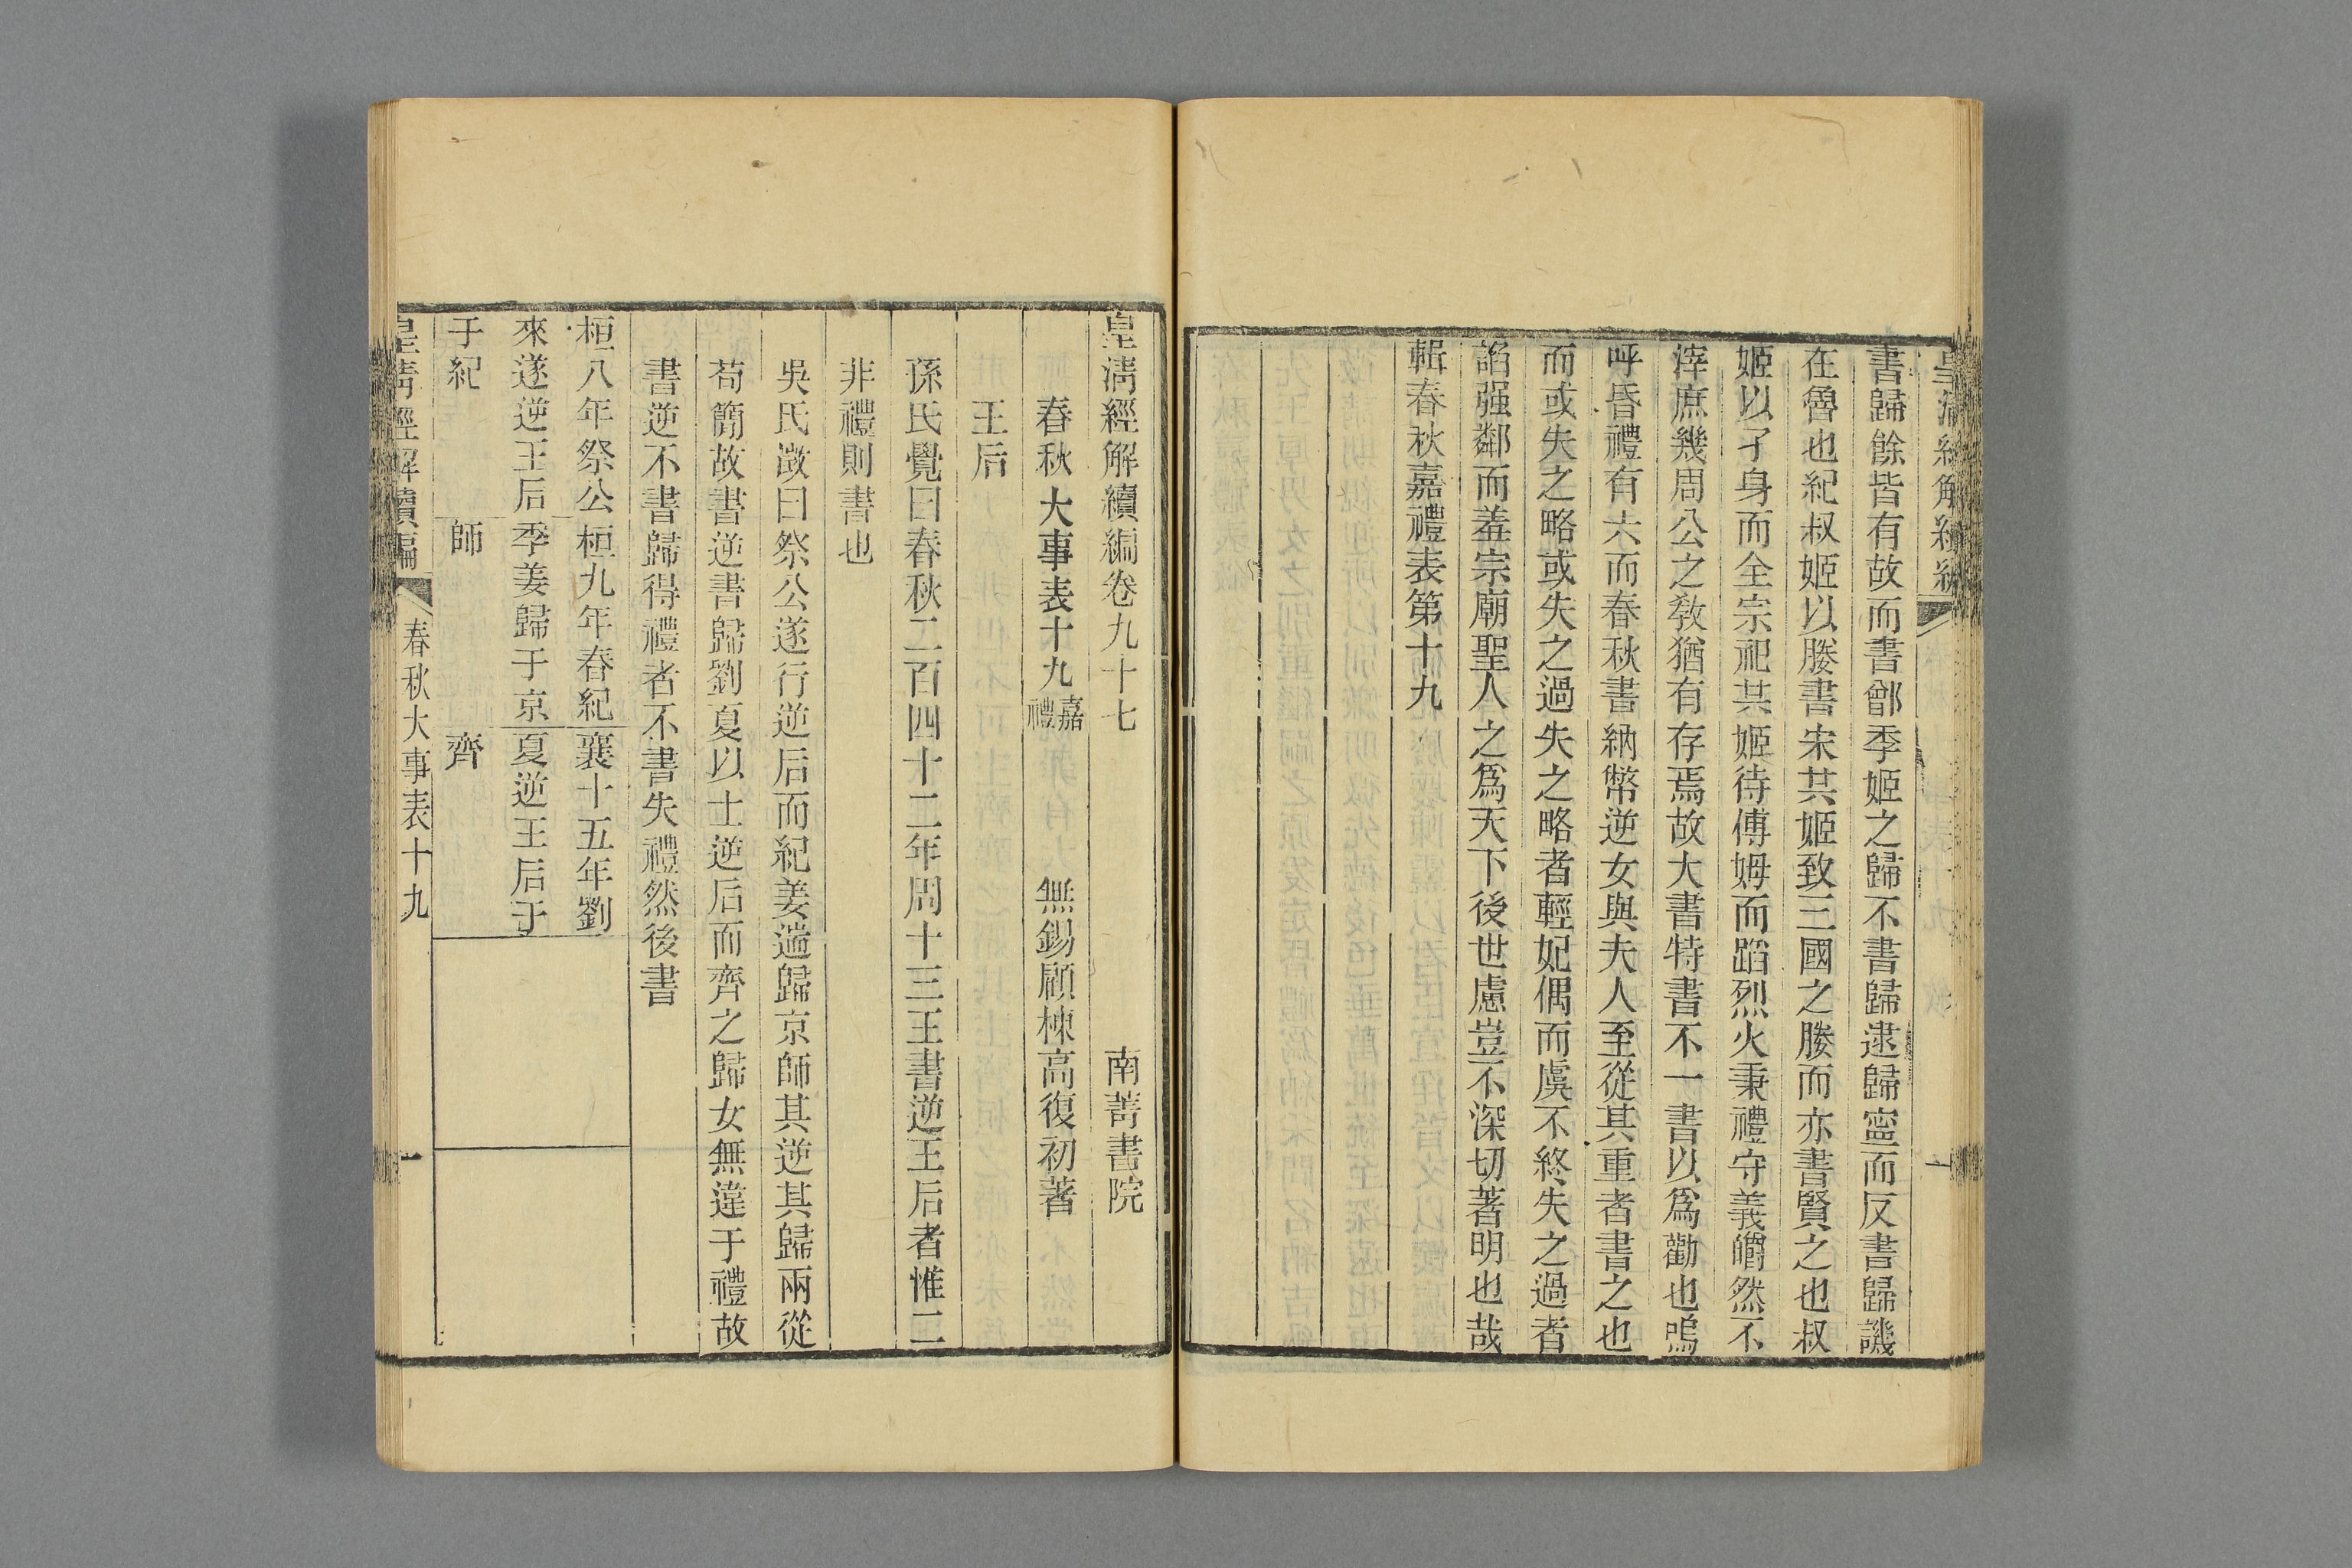 書歸餘皆有故而書鄫季姬之歸不書歸逮歸寧而反書歸譏
在魯也紀叔姬以媵書宋共姬致三國之媵而亦書賢之也叔
姬以孑身而全宗祀共姬待傅姆而蹈烈火秉禮守義皭然不
滓庶幾周公之敎猶有存焉故大書特書不一書以爲勸也嗚
呼昏禮有六而春秋書納幣逆女與夫人至從其重者書之也
而或失之略或失之過失之略者輕妃偶而虞不終失之過者
諂强鄰而羞宗廟聖人之爲天下後世慮豈不深切著明也哉
輯春秋嘉禮表第十九
皇淸經解續編卷九十七 南菁書院
春秋大事表十九 嘉禮 無錫顧棟高復初著
王后
孫氏覺曰春秋二百四十二年周十三王書逆王后者惟二
非禮則書也
吳氏澂曰祭公遂行逆后而紀姜遄歸京師其逆其歸兩從
苟簡故書逆書歸劉夏以士逆后而齊之歸女無違于禮故
書逆不書歸得禮者不書失禮然後書
桓八年祭公
來遂逆王后
于紀
桓九年春紀
季姜歸于京
師
襄十五年劉
夏逆王后于
齊
皇淸經解續編 春秋大事表十九 一